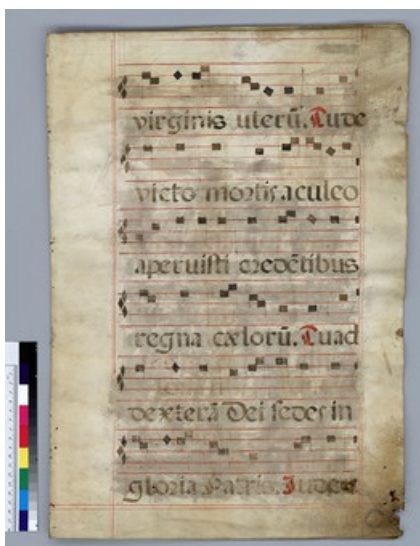 virginis uterū. Tu de
victo mortis aculeo
aperuisti credētibus
regna cælorū. Tu ad
dexterā Dei sedes in
gloria Patris. Iudex